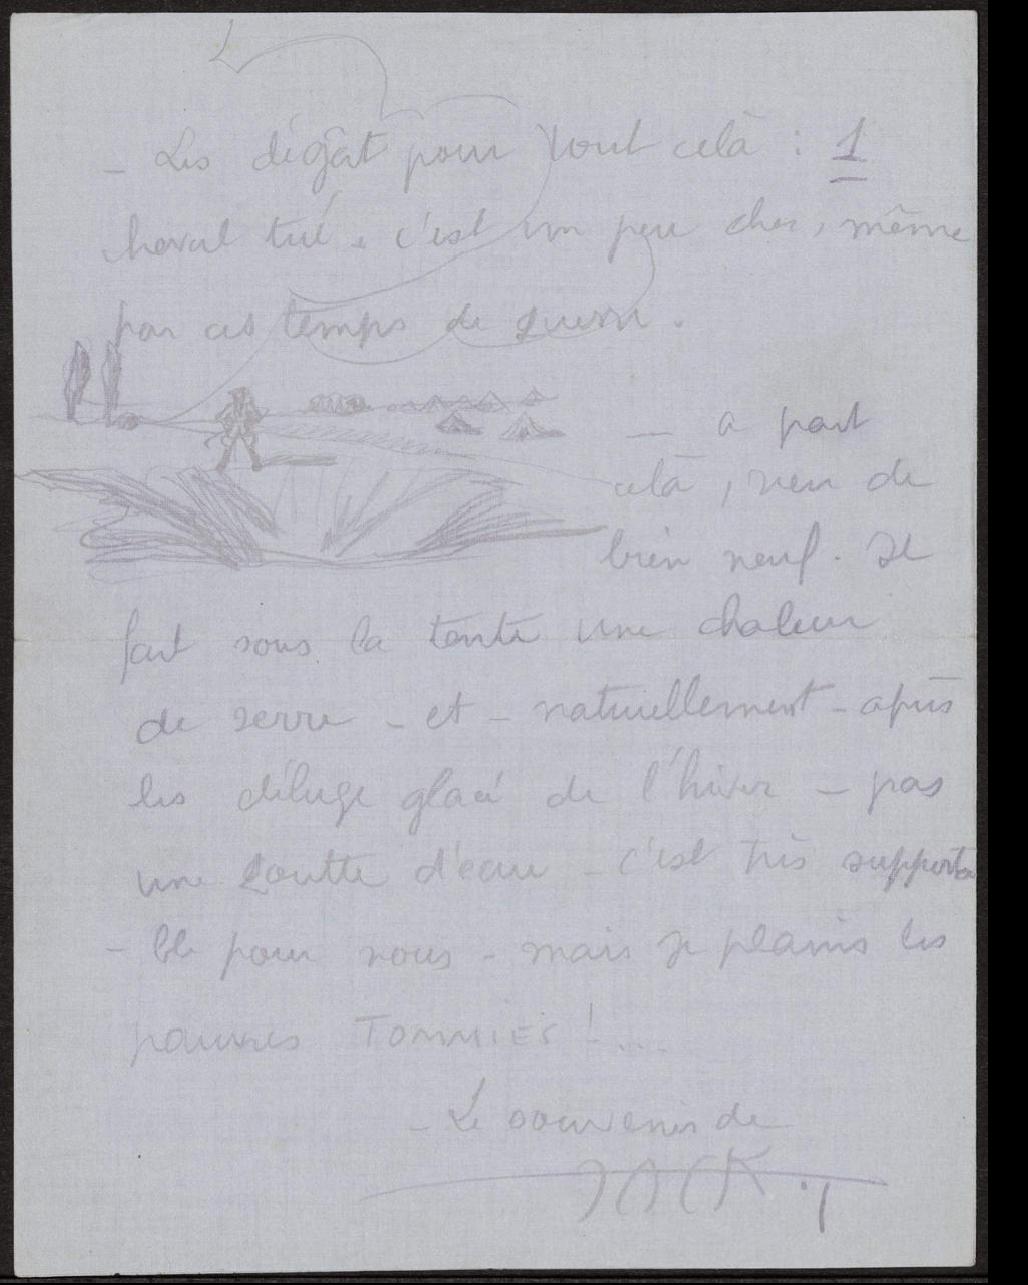 - Les dégât pour tout celà : 1
cheval tué. c'est un peu cher, même
par ces temps de guerre.
- a part
celà, rien de
bien neuf. Il
fait sous la tente une chaleur
de serre - et - naturellement - après
les déluge glacé de l'hiver - pas
une goutte d'eau - c'est très supporta
- ble pour nous - mais je plains les
pauvres TOMMIES !....
- Le souvenir de
JACK.